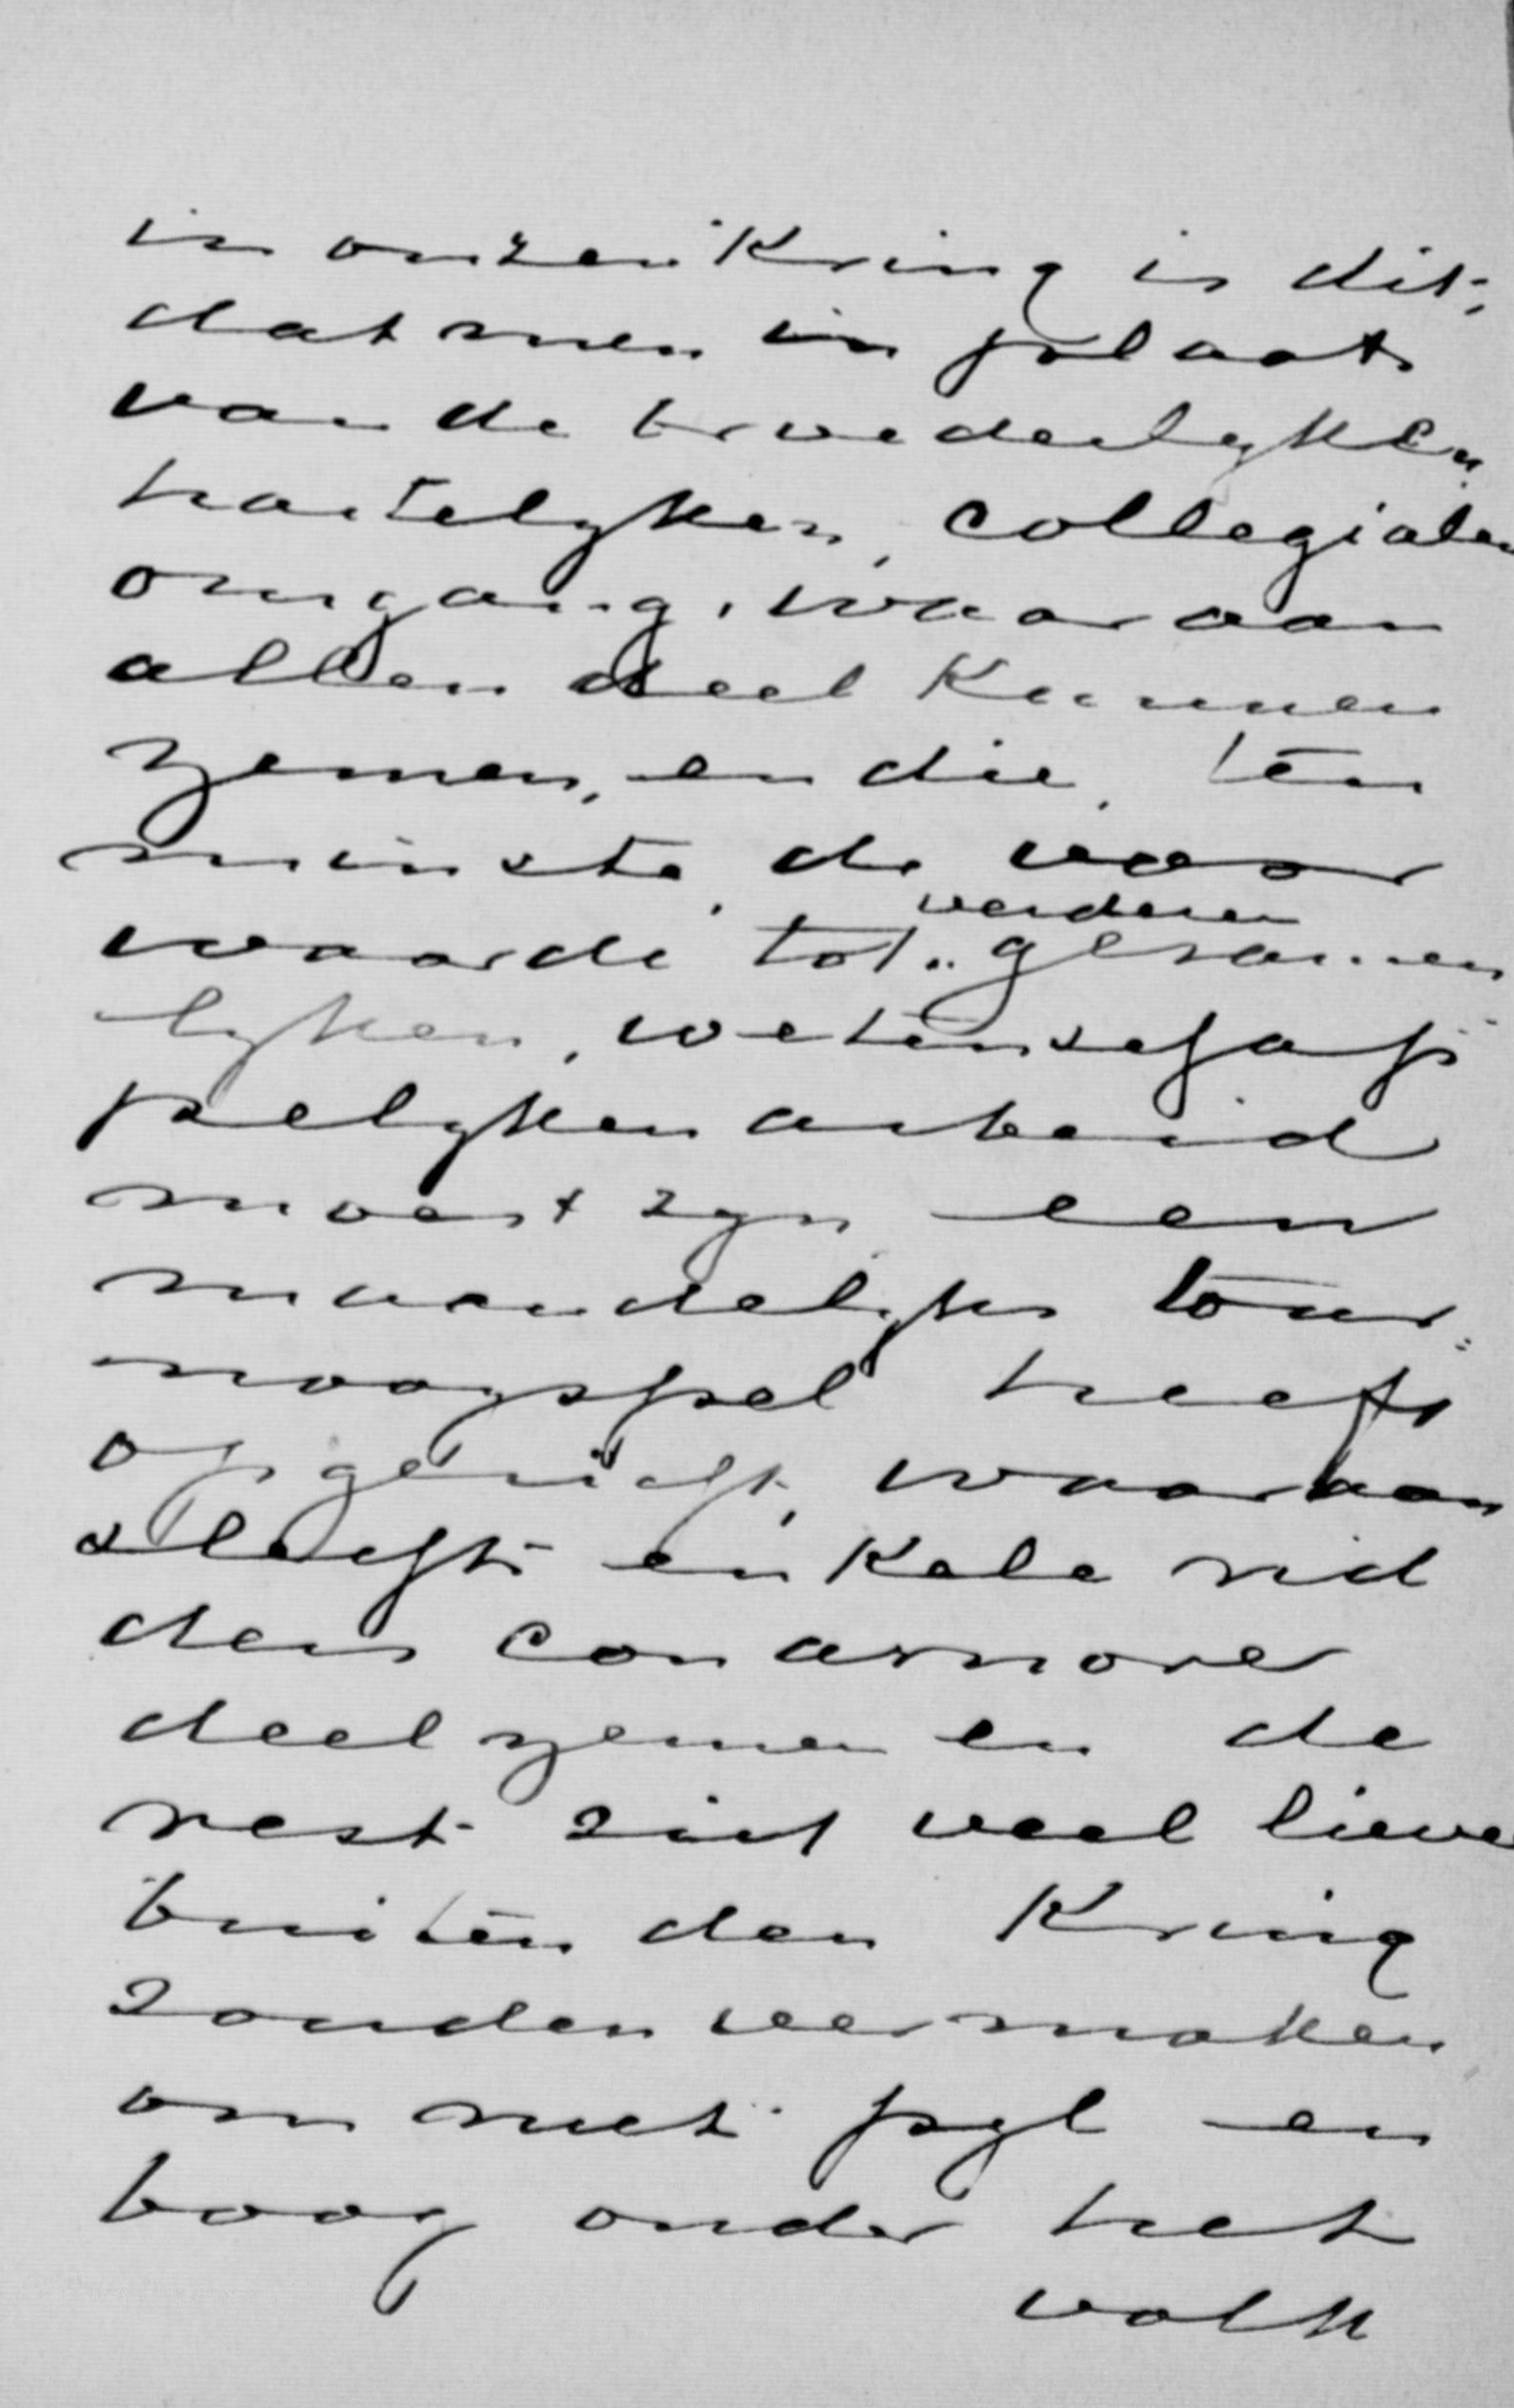 in onzen Kring is dit;
dat men in plaats
van de broederlyken
hartelyken, collegialen
omgang, waaraan
allen deel Kunnen
nemen, en die, ten
minste, de voor
verderen
waarde tot gezamen
lyken, wetenschap
pelyken arbeid
moest zyn een
maandelyks tour
nooyspel heeft
opgericht, waaraan
slechts enkele rid
ders con amore
deelnemen en de
rest zich veel liever
buiten den Kring
zouden vermaken
om met pyl en
boog onder het
volk